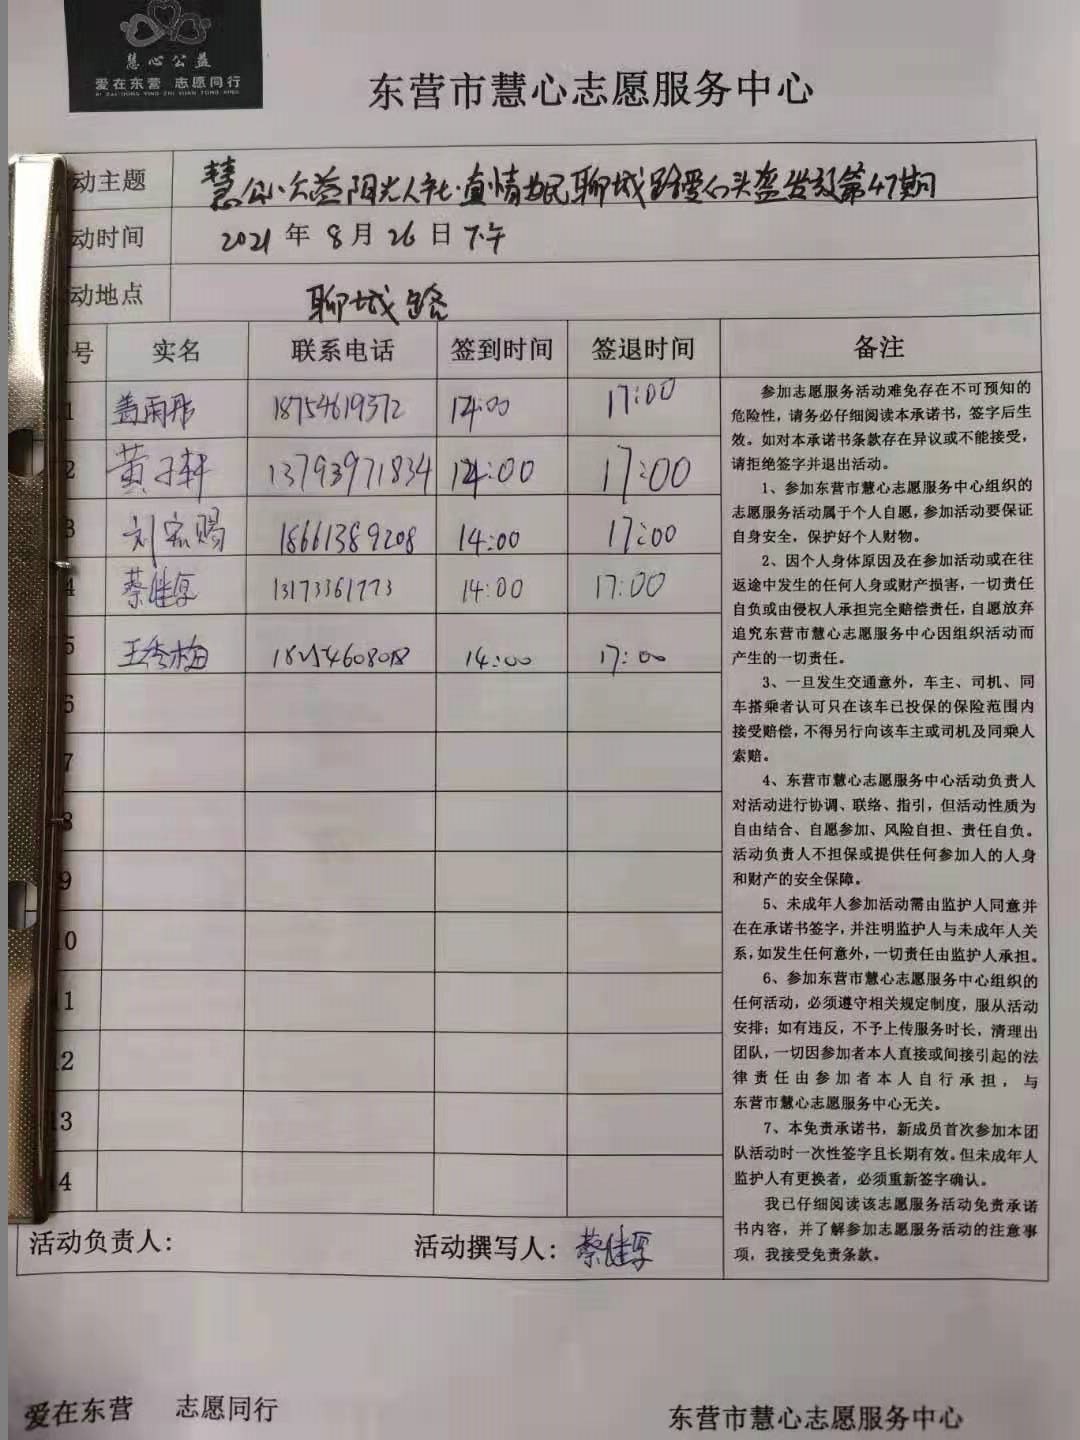 慧心公益
爱在东营 志愿同行
AI ZAI DONG YING ZHI YUAN TONG XING
东营市慧心志愿服务中心
动主题 慧心公益阳光人社·真情为民聊城路爱心头盔发放第47期
动时间 2021年8月26日下午
动地点 聊城路
号 实名 联系电话 签到时间 签退时间 备注
1 黄雨彤 18754619372 14:00 17:00
2 黄子轩 13793971834 14:00 17:00
3 刘宏赐 18661389208 14:00 17:00
4 蔡继厚 13173361773 14:00 17:00
5 王秀梅 14:00 17:00
6
7
8
9
10
11
12
13
14
参加志愿服务活动难免存在不可预知的
危险性，请务必仔细阅读本承诺书，签字后生
效。如对本承诺书条款存在异议或不能接受，
请拒绝签字并退出活动。
1、参加东营市慧心志愿服务中心组织的
志愿服务活动属于个人自愿，参加活动要保证
自身安全，保护好个人财物。
2、因个人身体原因及在参加活动或在往
返途中发生的任何人身或财产损害，一切责任
自负或由侵权人承担完全赔偿责任，自愿放弃
追究东营市慧心志愿服务中心因组织活动而
产生的一切责任。
3、一旦发生交通意外，车主、司机、同
车搭乘者认可只在该车已投保的保险范围内
接受赔偿，不得另行向该车主或司机及同乘人
索赔。
4、东营市慧心志愿服务中心活动负责人
对活动进行协调、联络、指引，但活动性质为
自由结合、自愿参加、风险自担、责任自负。
活动负责人不担保或提供任何参加人的人身
和财产的安全保障。
5、未成年人参加活动需由监护人同意并
在在承诺书签字，并注明监护人与未成年人关
系，如发生任何意外，一切责任由监护人承担。
6、参加东营市慧心志愿服务中心组织的
任何活动，必须遵守相关规定制度，服从活动
安排；如有违反，不予上传服务时长，清理出
团队，一切因参加者本人直接或间接引起的法
律责任由参加者本人自行承担，与
东营市慧心志愿服务中心无关。
7、本免责承诺书，新成员首次参加本团
队活动时一次性签字且长期有效。但未成年人
监护人有更换者，必须重新签字确认。
我已仔细阅读该志愿服务活动免责承诺
书内容，并了解参加志愿服务活动的注意事
项，我接受免责条款。
活动负责人： 活动撰写人：蔡继厚
爱在东营 志愿同行 东营市慧心志愿服务中心